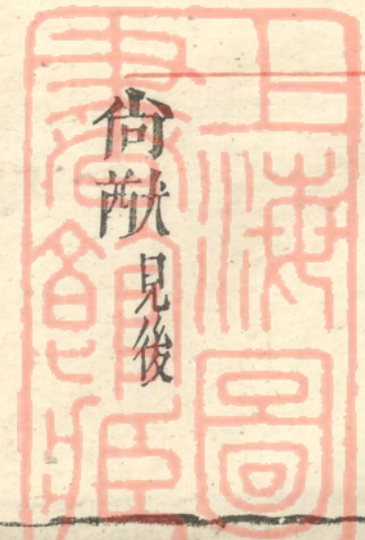 尙猷見後
上海圖
書館藏